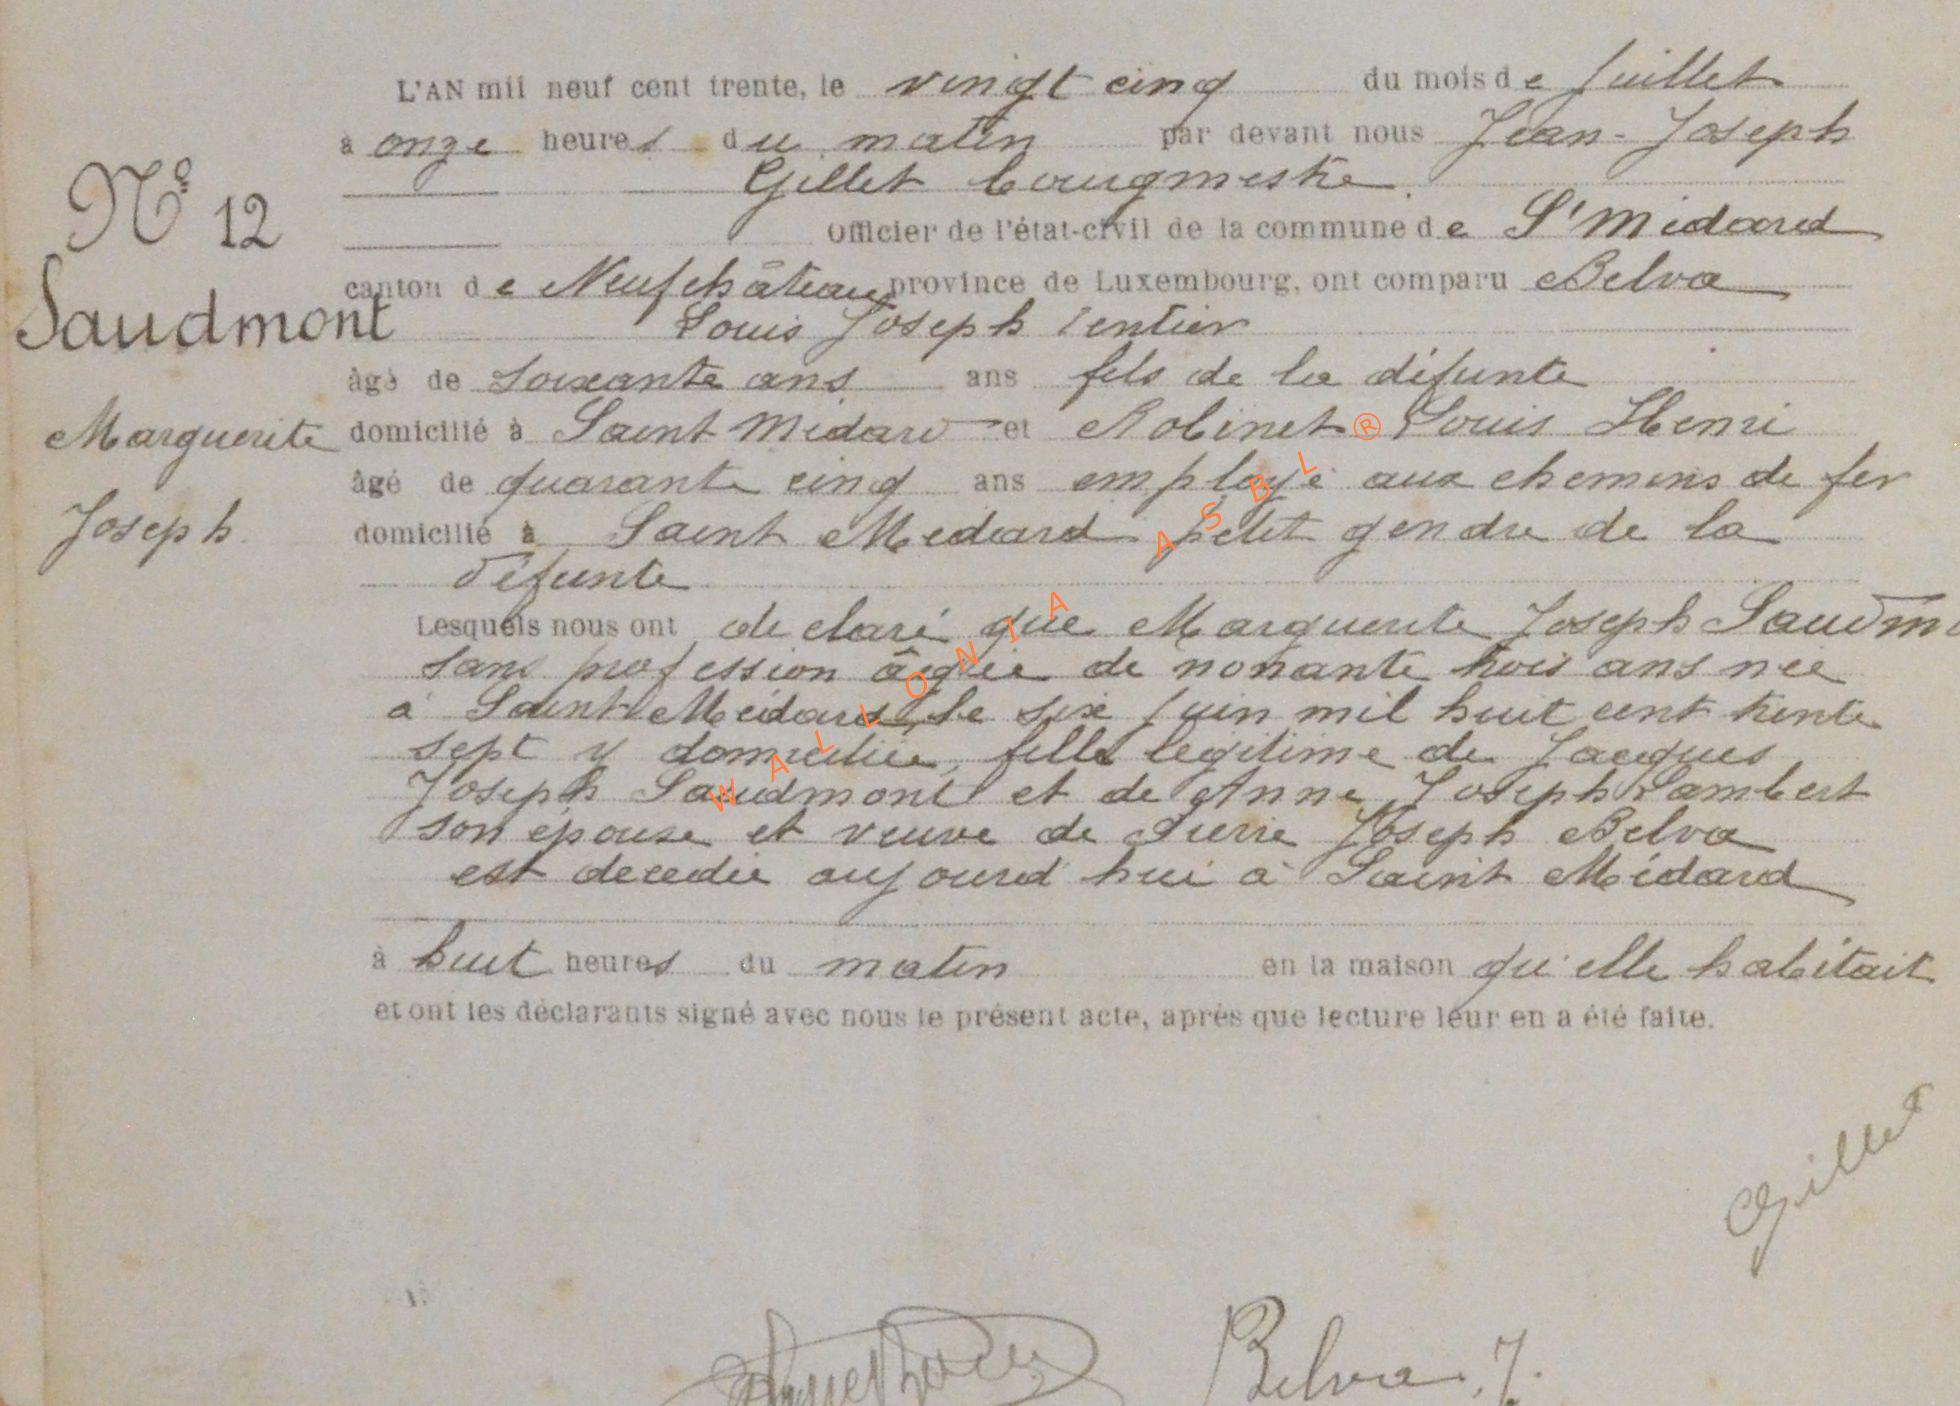 L'AN mil neuf cent trente, le vingt cinq du mois de Juillet
à onze heures du matin par devant nous Jean-Joseph
Gillet bourgmestre.
Officier de l'état-civil de la commune de St Médard
canton de Neufchâteau province de Luxembourg, ont comparu Belva
Louis Joseph rentier
âgé de soixante ans ans fils de la défunte
domicilié à Saint Médard et Robinet Louis Henri
âgé de quarante cinq ans employé aux chemins de fer
domicilié à Saint Médard petit gendre de la
défunte
Lesquels nous ont declaré que Marguerite Joseph Saudm
sans profession âgée de nonante trois ans née
à Saint Médard, le six juin mil huit cent trente
sept y domiciliée, fille légitime de Jacques
Joseph Saudmont et de Anne Joseph Lambert
son épouse et veuve de Pierre Joseph Belva
est decedée aujourd'hui à Saint Médard
à huit heures du matin en la maison qu'elle habitait
et ont les déclarants signé avec nous le présent acte, après que lecture leur en a été faite.
N° 12
Saudmont
Marguerite
Joseph.
WALLONIA ASBL ®
Gillet
Belva. J.